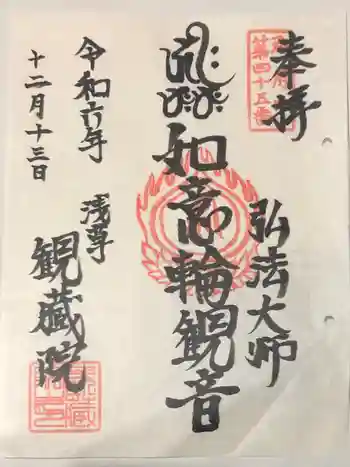 奉拝
第四十五番
弘法大師
如意輪観音
令和六年
十二月十三日
浅草
観蔵院